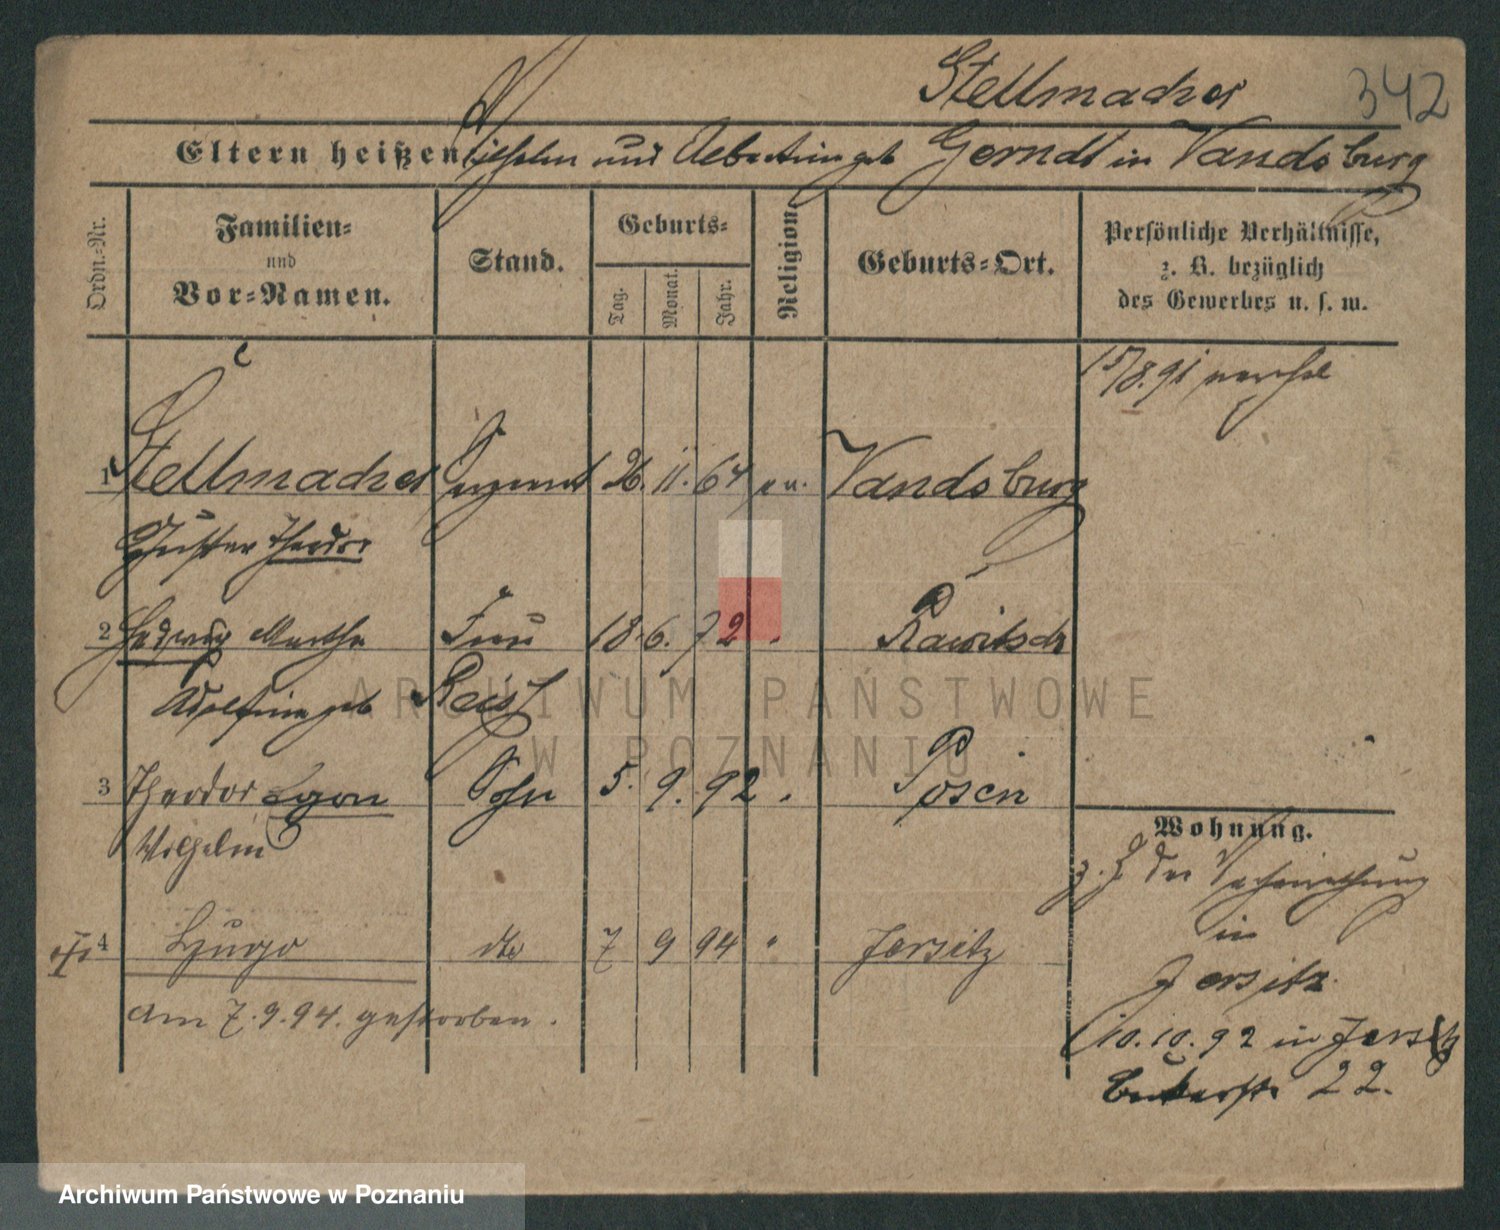 Stellmacher 342
Eltern heißen Wilhelm und Albertine geb Gerndt in Vandsburg
Ordn.-Nr.
Familien-
und
Vor-Namen.
Stand.
Geburts-
Tag.
Monat.
Jahr.
Religion.
Geburts-Ort.
Persönliche Verhältnisse,
z. B. bezüglich
des Gewerbes u. s. w.
15/8.91
1 Stellmacher Sergeant 26. 11. 64 ev. Vandsburg
Gustav Theodor
2 Hedwig Martha Frau 18. 6. 72 " Rawitsch
Adolfine geb
3 Theodor Egon Sohn 5. 9. 92 " Posen
Wilhelm
4 Hugo dto 7 9 94 " Jersitz
am 7.9.94. gestorben.
Wohnung.
z. Z. der
in
Jersitz
10.10.92 in Jersitz
Bukerstr 22.
ARCHIWUM PAŃSTWOWE
W POZNANIU
Archiwum Państwowe w Poznaniu